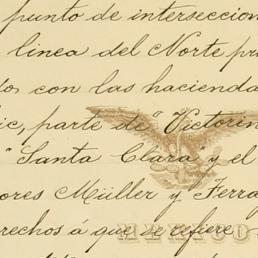 punto de interseccion
linea del Norte pr
do con las hacienda
ic, parte de "Victorin
"Santa Clara" y el
ores Müller y Ferra
rechos á que se refiere
MEXICO